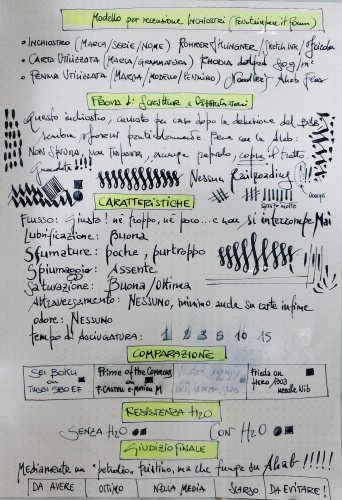 Modello per recensione INCHIOSTRI (Fountainpen.it forum)
• INCHIOSTRO (MARCA/SERIE/NOME) ROHRER & KLINGNER / Sketch Ink /
• CARTA UTILIZZATA (MARCA/GRAMMATURA) RHODIA dotpad 80g/m²
• PENNA UTILIZZATA (MARCA/MODELLO/PENNINO) Noodler's Ahab Flex
PROVA di Scrittura e
Questo inchiostro, caricato per caso dopo la delusione del
sembra trovarsi particolarmente Bene con la Ahab:
NON SPIUMA, non TRAPASSA, asciuga rapido, copre il tratto
Nessun Railroading
ooops
spinto molto
CARATTERISTICHE
Flusso: Giusto! nè troppo, nè poco... e non si interrompe Mai
Lubrificazione: Buona
Sfumature: poche, purtroppo
Spiumaggio: Assente
Saturazione: Buona/Ottima
Attraversamento: NESSUNO, minimo anche su carte infime
odore: NESSUNO
tempo di asciugatura: 1 2 3 5 10 15
COMPARAZIONE
SEI BOKU on TWSBI 580 EF
Prime of the Commons on F. CASTELL e-Motion M
Frieda on HERO 1003 needle Nib
RESISTENZA H2O
SENZA H2O
CON H2O
GIUDIZIO FINALE
Mediamente un perfido, ma che funge su Ahab!!!!!
DA AVERE OTTIMO NELLA MEDIA SCARSO DA EVITARE!